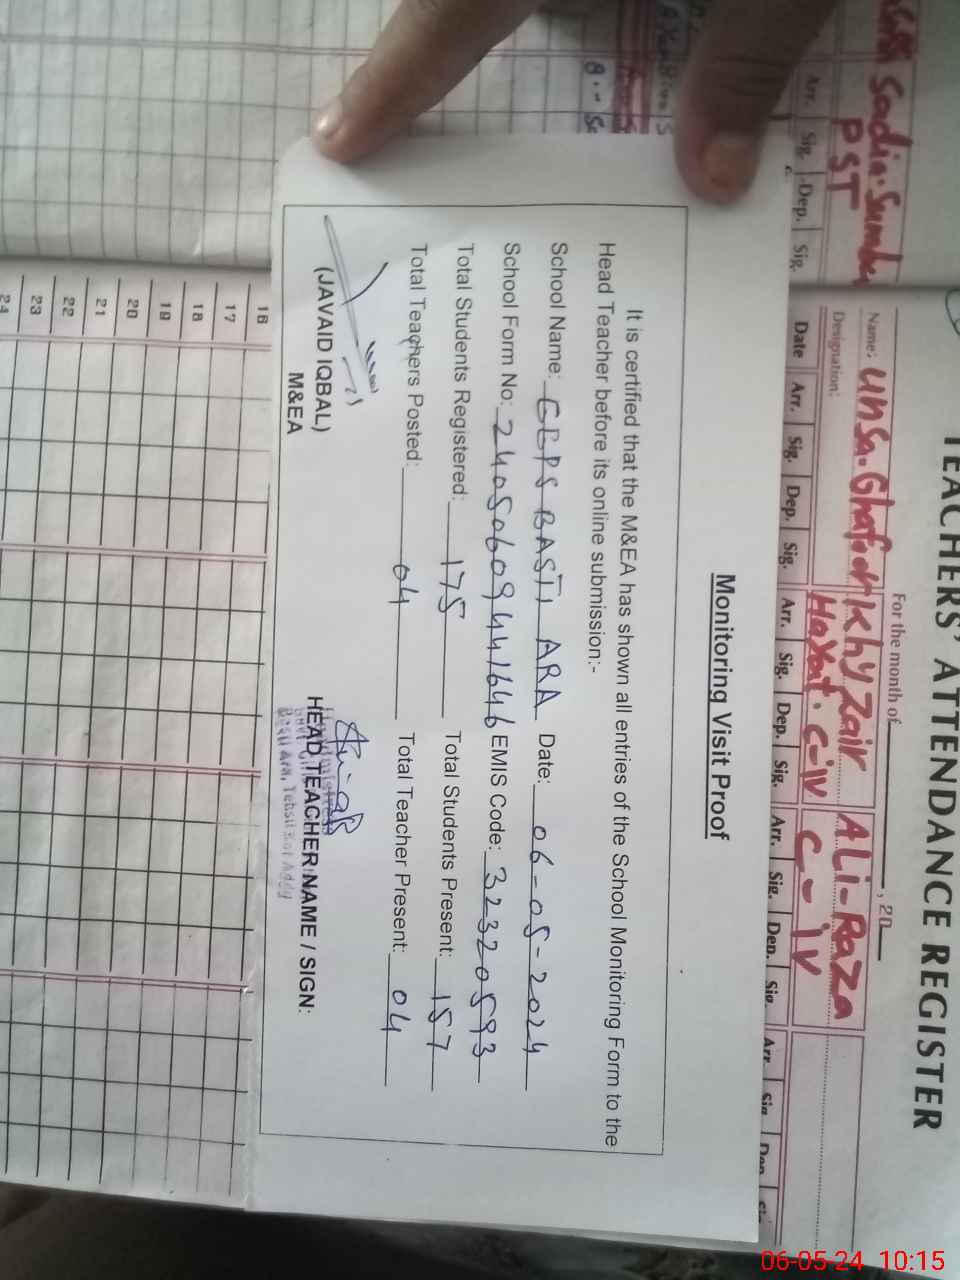 TEACHERS' ATTENDANCE REGISTER
For the month of , 20
Name: Unsa.Ghafoor Khyzair ALi-Raza
Designation: Hayat.C-iV C-iV
Sadia.
PST
Arr. Sig. Dep. Sig.
Date Arr. Sig. Dep. Sig. Arr. Sig. Dep. Sig. Arr. Sig. Dep. Sig. Arr. Sig. Dep.
Monitoring Visit Proof
It is certified that the M&EA has shown all entries of the School Monitoring Form to the
Head Teacher before its online submission:-
School Name: GEPS BASTI ARA Date: 06-05-2024
School Form No: 24050609441646 EMIS Code: 32320593
Total Students Registered: 175 Total Students Present: 157
Total Teachers Posted: 04 Total Teacher Present: 04
(JAVAID IQBAL) HEAD TEACHER NAME / SIGN:
M&EA
Basti Ara, Tehsil Kot Addu
16
17
18
19
20
21
22
23
24
06-05-24 10:15